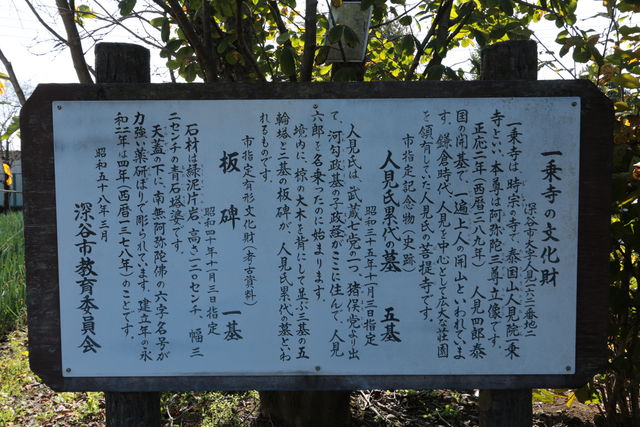 一乗寺の文化財
深谷市大字人見一六三二番地二
一乗寺は、時宗の寺で、泰国山人見院一乗
寺といい、本尊は阿弥陀三尊の立像です。
正応二年（西暦一二八九年）人見四郎泰
国の開基で、一遍上人の開山といわれていま
す。鎌倉時代、人見を中心として広大な荘園
を領有していた人見氏の菩提寺です。
市指定記念物（史跡）
人見氏累代の墓　五基
昭和三十五年十一月三日指定
人見氏は、武蔵七党の一、猪俣党より出
て、河匂政基の子政経がここに住んで、人見
六郎を名乗ったのに始まります。
境内に、椋の大木を背にして並ぶ三基の五
輪塔と二基の板碑が、人見氏累代の墓といわ
れるものです。
市指定有形文化財（考古資料）
板碑　一基
昭和四十年十一月三日指定
石材は緑泥片岩、高さ二一〇センチ、幅三
二センチの青石塔婆です。
天蓋の下に、南無阿弥陀佛の六字名号が
力強い薬研ぼりで彫られています。建立年の永
和二年は四年（西暦一三七八年）のことです。
昭和五十八年三月
深谷市教育委員会